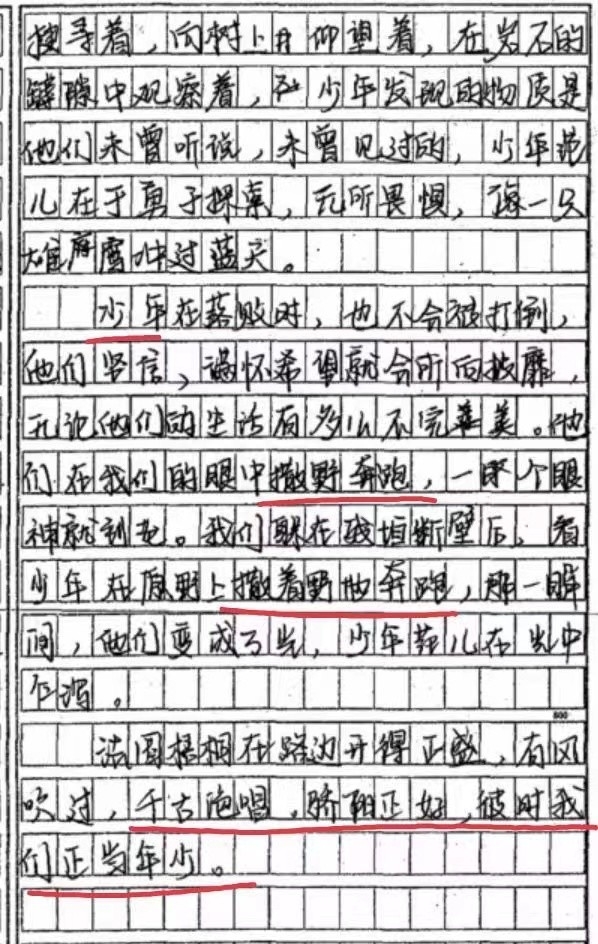 搜寻着，向树上仰望着，在岩石的
缝隙中观察着，少年发现的物质是
他们未曾听说，未曾见过的，少年范
儿在于勇于探索，无所畏惧，像一只
雄鹰冲过蓝天。
少年在落败时，也不会被打倒，
他们坚信，满怀希望就会所向披靡，
无论他们的生活有多么不完美。他
们在我们的眼中撒野奔跑，一个眼
神就到。我们躲在残垣断壁后，看
少年在原野上撒着野地奔跑，那一瞬
间，他们变成了光，少年范儿在光中
乍泻。
800
法国梧桐在路边开得正盛，有风
吹过，千古绝唱，骄阳正好，彼时我
们正当年少。